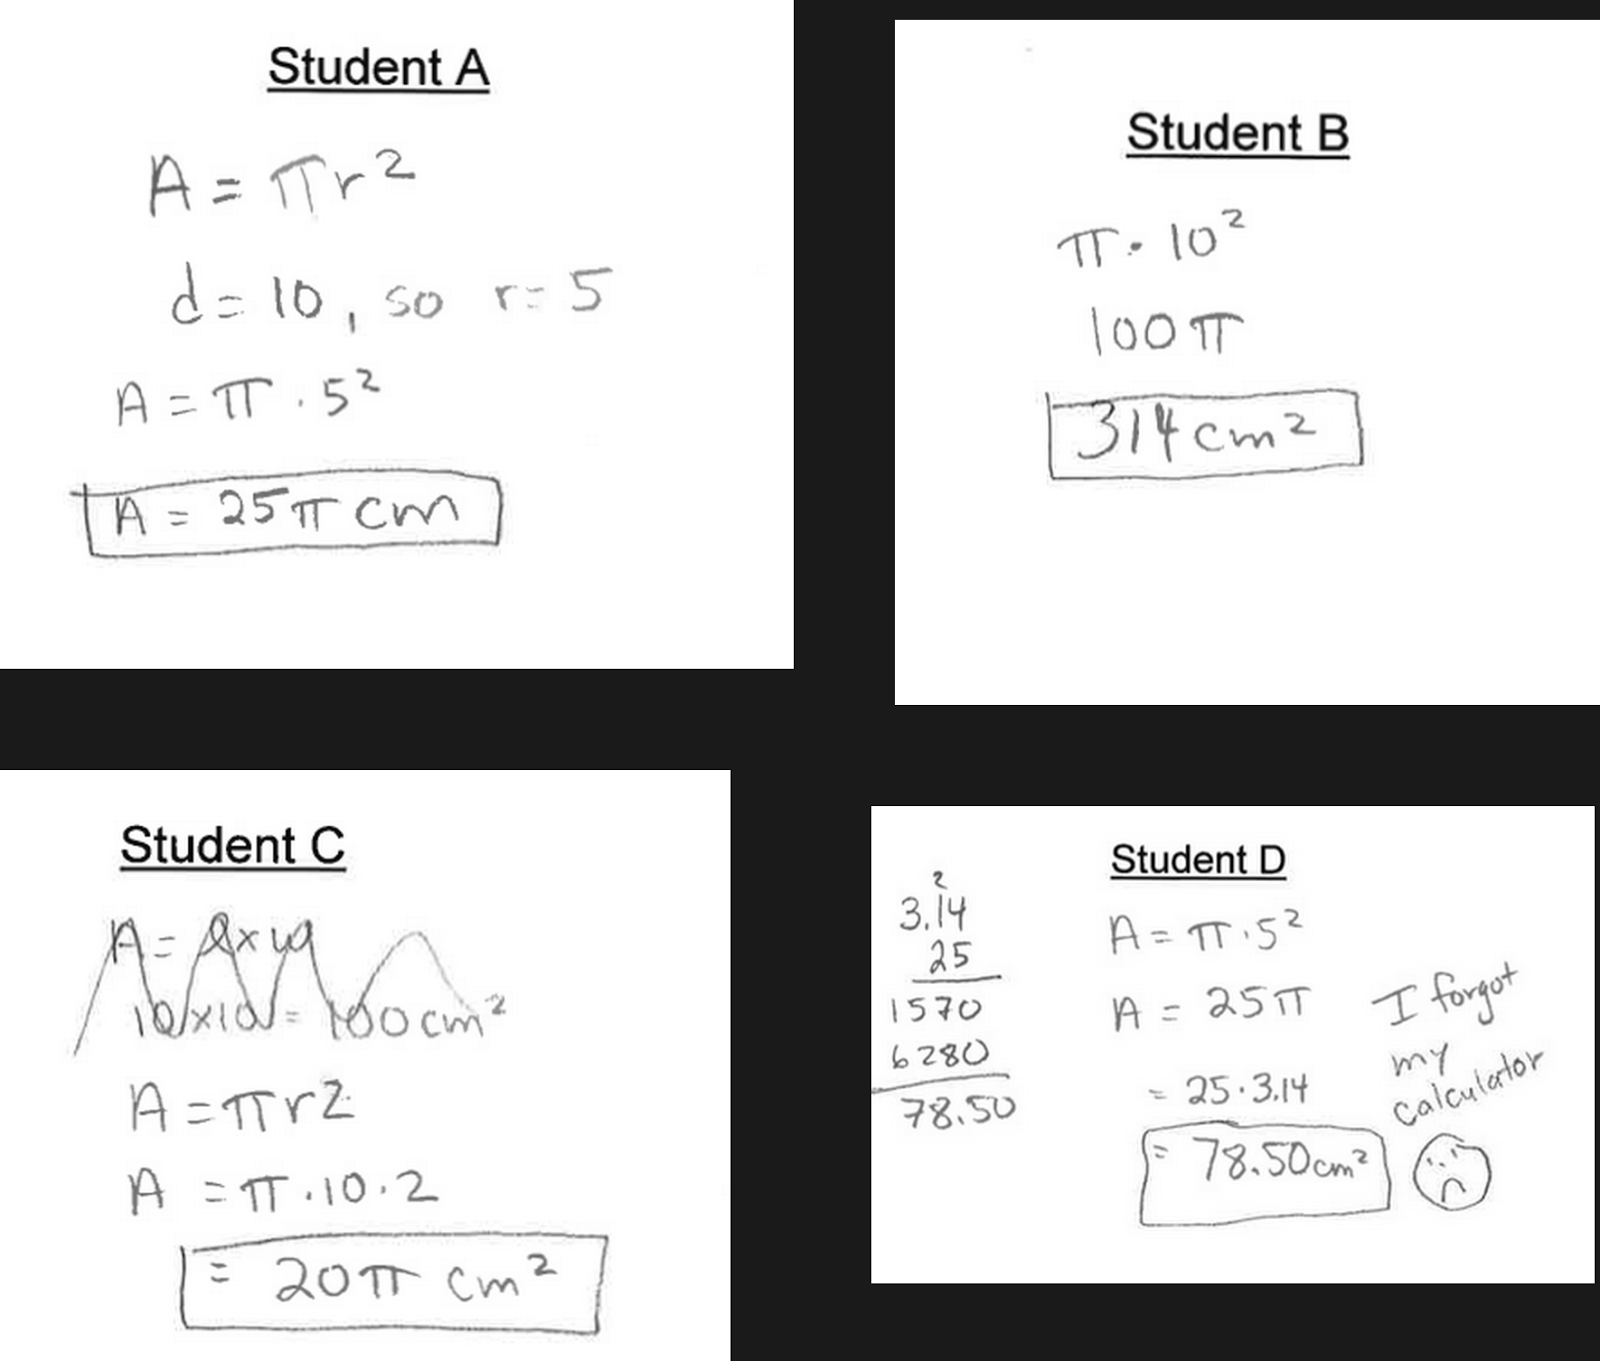 Student A
A = πr²
d = 10, so r = 5
A = π · 5²
A = 25π cm
Student B
π · 10²
100π
314 cm²
Student C
A = l x w
10 x 10 = 100 cm²
A = πr2
A = π · 10 · 2
= 20π cm²
Student D
2
3.14
25
1570
6280
78.50
A = π · 5²
A = 25π
= 25 · 3.14
= 78.50 cm²
I forgot
my
calculator